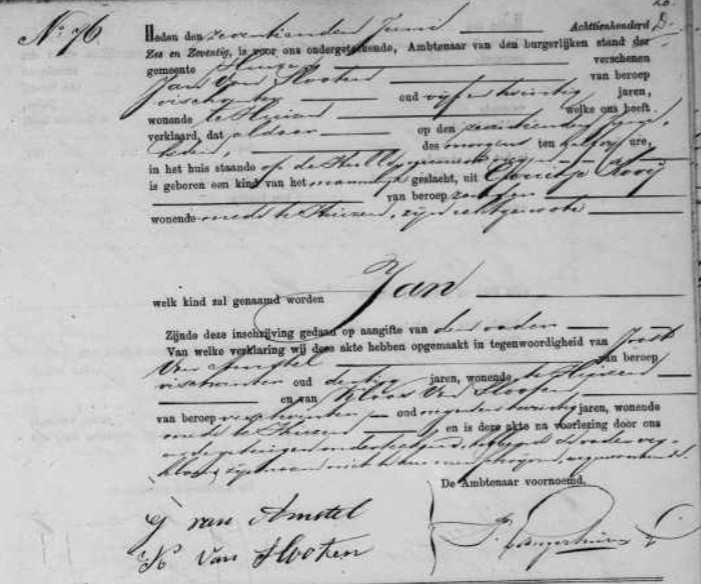 No. 76
Heden den zeventienden Junij Achttienhonderd
Zes en Zeventig, is voor ons ondergeteekende, Ambtenaar van den burgerlijken stand der
gemeente Huizen verschenen
Jan Van Slooten van beroep
oud vijf en twintig jaren,
wonende te Huizen welke ons heeft
verklaard, dat aldaar op den zeventienden Junij
heden, des morgens ten half ure,
in het huis staande op de
is geboren een kind van het mannelijk geslacht, uit Rooij
van beroep zonder
wonende mede te Huizen, zijn echtgenoote
welk kind zal genaamd worden Jan
Zijnde deze inschrijving gedaan op aangifte van den vader
Van welke verklaring wij deze akte hebben opgemaakt in tegenwoordigheid van Joost
Van Amstel van beroep
oud dertig jaren, wonende te Huizen
en van Klaas Van Slooten
van beroep oud jaren, wonende
mede te Huizen en is deze akte na voorlezing door ons
en de getuigen onderteekend, hebbende de vader ver-
De Ambtenaar voornoemd,
J van Amstel
K Van Slooten